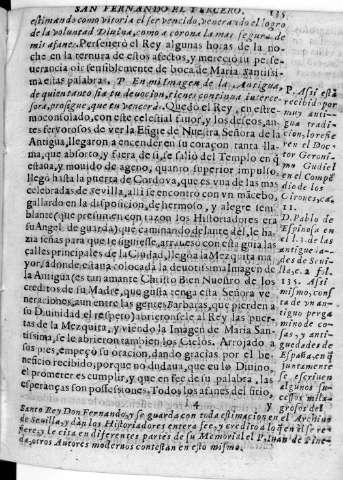 SAN FERNANDO EL TERCERO.
135
estimando como vitoria el ser vencido, venerando el logro
de la voluntad Diuina, como a corona la mas segura de
mis afanes. Perseuerò el Rey algunas horas de la no-
che en la ternura de estos afectos, y mereciò su perse-
uerancia oir sensiblemente de boca de Maria Santissi-
ma estas palabras. P. En mi Imagen de la Antigua,
de quien tanto fia tu deuocion, tienes continua interce-
sora, prosigue, que tu venceràs. Quedò el Rey, en estre-
mo consolado, con este celestial fauor, y los deseos, an-
tes feruorosos de ver la Efigie de Nuestra Señora de la
Antigua, llegaron a encender en su coraçon tanta lla-
ma, que absorto, y fuera de si, se saliò del Templo en q
estaua, y mouido de ageno, quanto superior impulso,
llegò hasta la puerta de Cordova, que es vna de las mas
celebradas de Sevilla, alli se encontrò con vn mãcebo,
gallardo en la disposicion, de hermoso, y alegre sem
blante (que presumen con razon los Historiadores era
su Angel de guarda) que caminando delante dèl, le ha-
zia señas para que le siguiesse, atrauesò con esta guia las
calles principales de la Ciudad, llegò a la Mezquita ma
yor, adonde estaua colocada la deuotissima Imagen de
la Antigua (es tan amante Christo Bien Nuestro de los
creditos de su Madre, que gusta tenga esta Señora ve-
neraciones, aun entre las gentes Barbaras, que pierden a
su Diuinidad el respeto) abrieronsele al Rey las puer-
tas de la Mezquita, y viendo la Imagen de Maria San-
tissima, se le abrieron tambien los Cielos. Arrojado a
sus pies, empeçò su oracion, dando gracias por el be-
neficio recibido, porque no dudaua, que en lo Diuino,
el prometer es cumplir, y que en fee de su palabra, las
esperanças son possessiones. Todos los afanes del sitio,
P. Assi està
recibido por
muy anti-
gua tradi-
cion, lo refie-
re el Doc-
tor Geroni-
mo Gudiel
en el Compẽ
dio de los
Girones, ca.
11.
D. Pablo de
Espinosa en
el l. 1. de las
antigueda-
des de Seui-
lla, c. 2. fol.
135. assi
mismo, cons-
ta de vn an-
tiguo perga-
mino de co-
sas, y anti-
guedades de
España, en q
juntamente
se escriuen
algunos su-
cessos mila-
grosos del
Santo Rey Don Fernando, y se guarda con toda estimacion en el Archiuo
de Sevilla, y dan los Historiadores entera fee, y credito a lo q en el se re-
fiere, y le cita en diferentes partes de su Memorial el P. Iuan de Pine-
da, otros Autores modernos contestan en esto mismo.